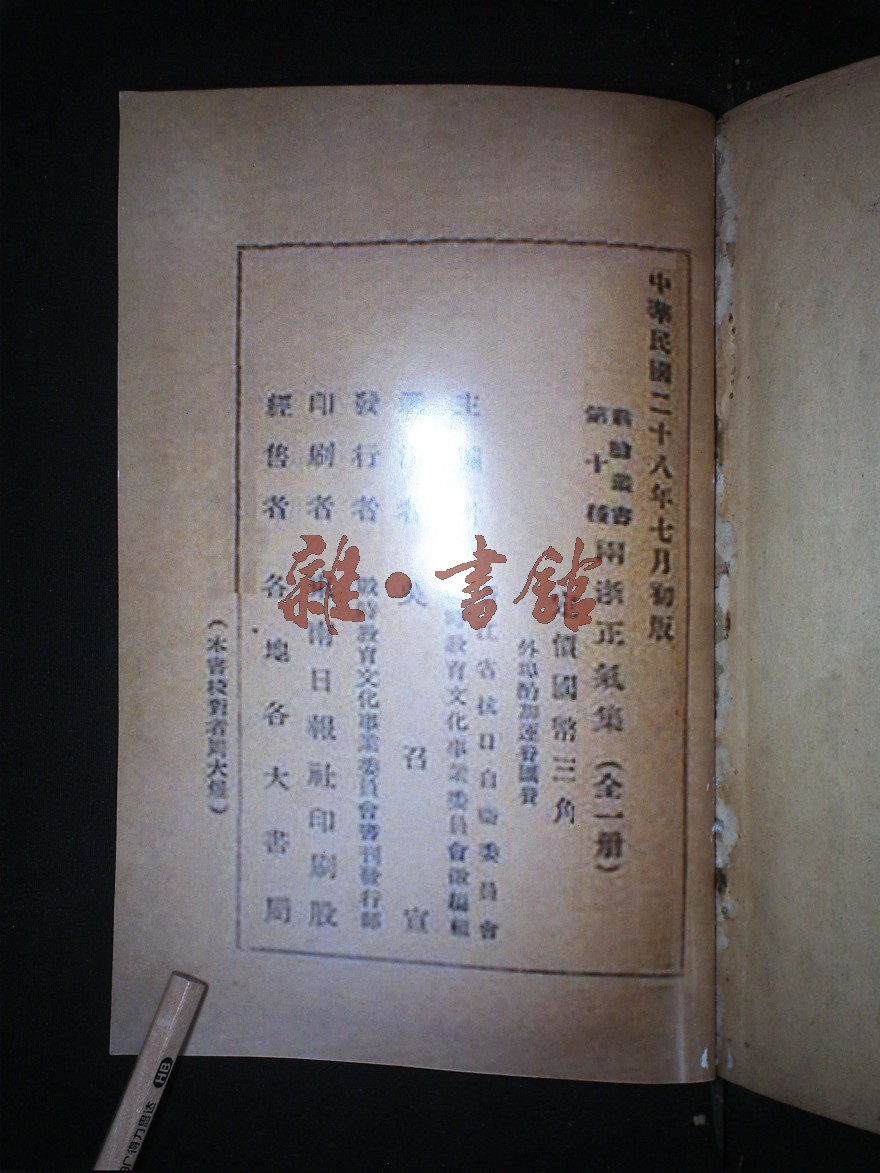 中華民國二十八年七月初版
叢書
第十種
兩浙正氣集（全一册）
價國幣三角
外埠酌加運費匯費
江省抗日自衛委員會
教育文化事業委員會徵編組
主
者
召宣
發行者
戰時教育文化事業委員會書刊發行部
印刷者
東南日報社印刷股
經售者
各地各大書局
（本書校對者周大
雜·書館
HB
得力思达